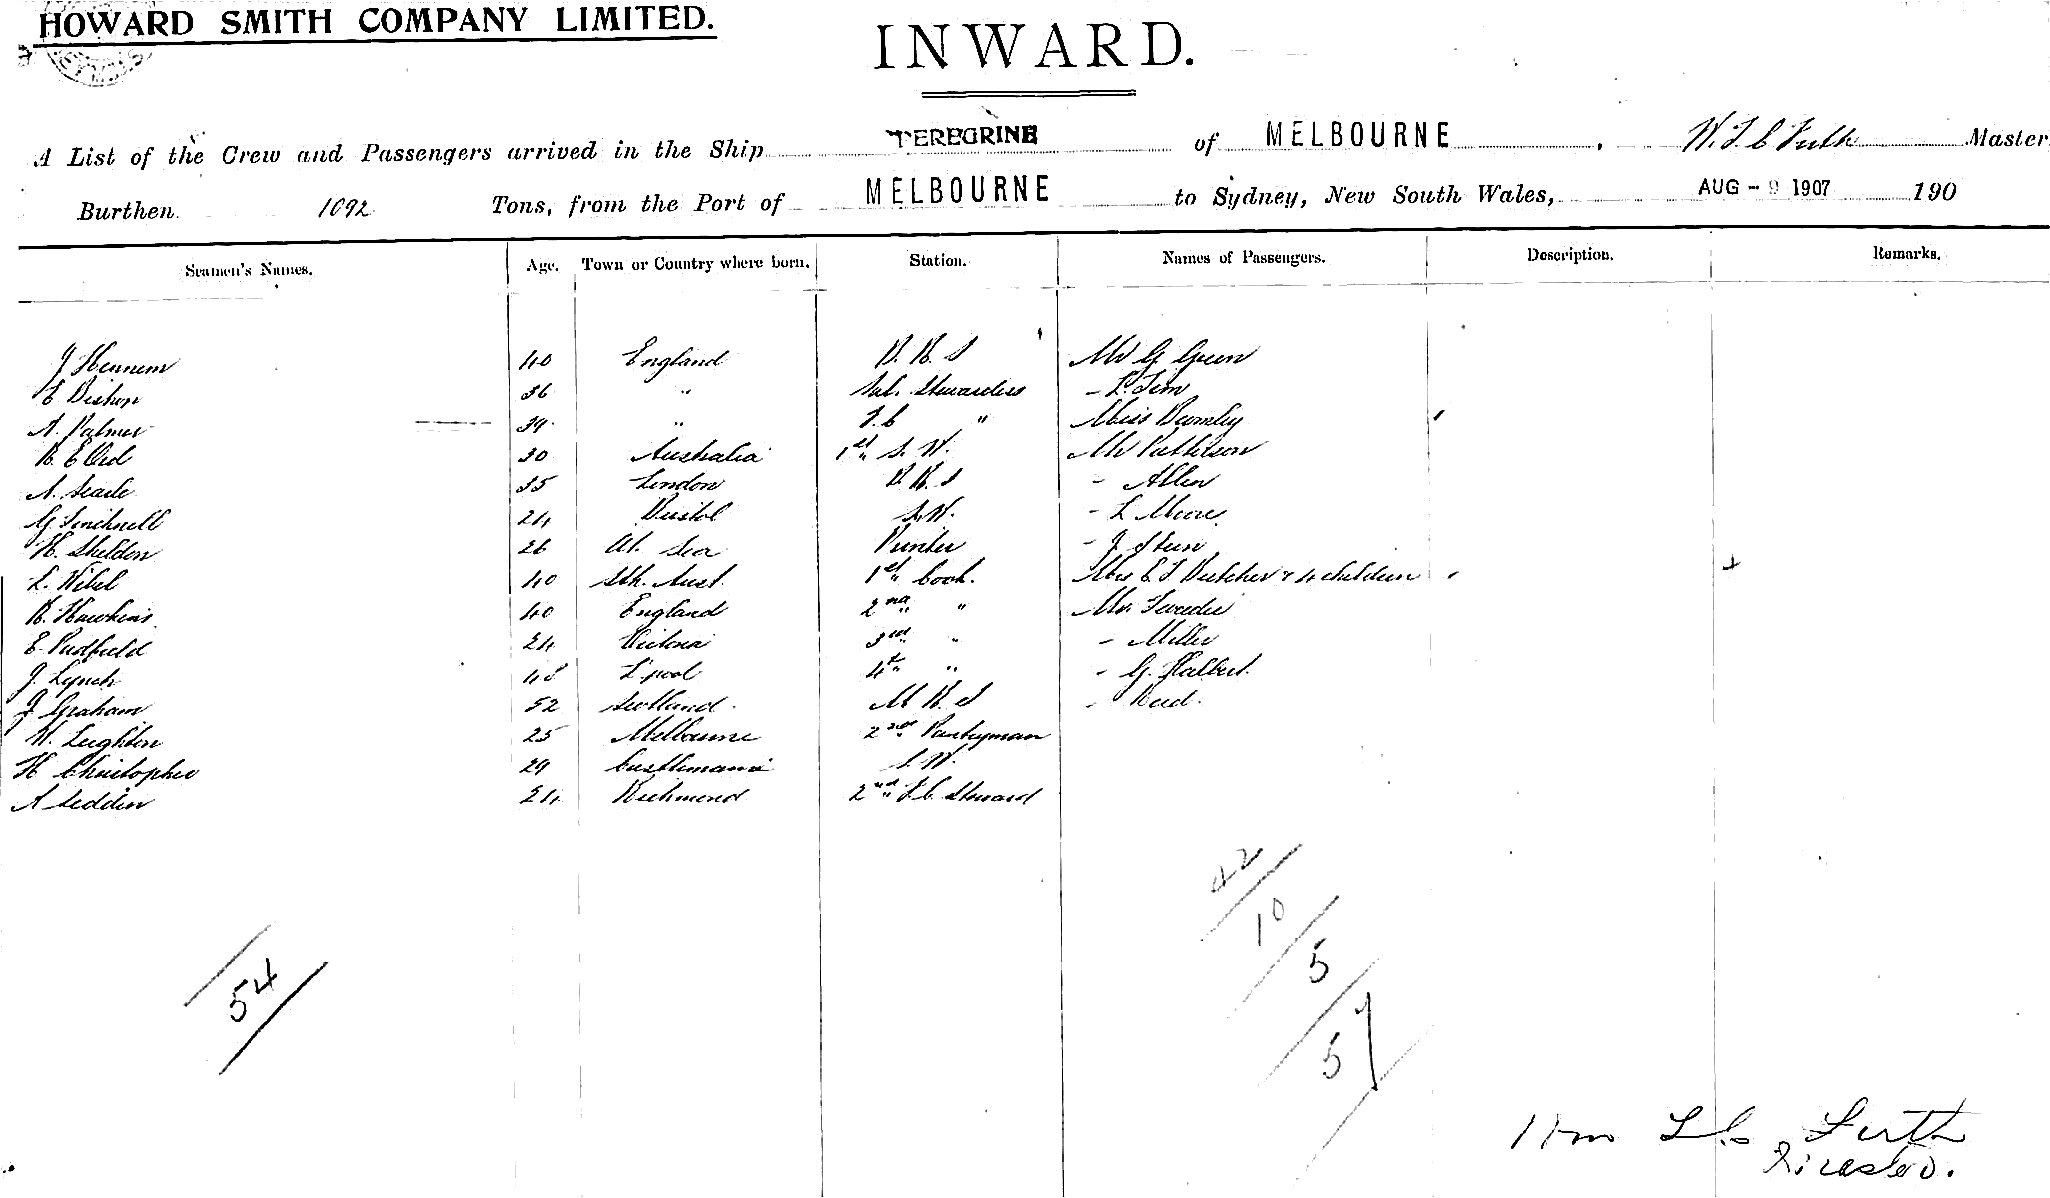 HOWARD SMITH COMPANY LIMITED.
INWARD.
A List of the Crew and Passengers arrived in the Ship PEREGRINE of MELBOURNE. W. J. C. Master
Burthen 1092 Tons, from the Port of MELBOURNE to Sydney, New South Wales, AUG - 9 1907 190
Seamen's Names. Age. Town or Country where born. Station. Names of Passengers. Description. Remarks.
J Hennem 40 England Mr G Green
E Bishop 36 " Stewardess - L.
A. Palmer 39 " " Miss Bromley
E Ord 30 Australia 1st S. W. Mr Pattison
A. Searle 35 London - Allen
G 24 Bristol S.W. - L Moore
H. Sheldon 26 At Sea Printer - J Stein
L. 40 Sth. Aust. 1st Cook. Mrs E J Butcher & 4 children
R. Hawkins 40 England 2nd " Mr. Tweedie
E. Padfield 24 Victoria 3rd " - Miller
J. Lynch 48 L'pool 4th " - G. Halbert.
J Graham 52 Scotland - Reed.
W. Leighton 25 Melbourne 2nd Pantryman
H Christopher 29 Castlemaine S. W.
A Seddon 24 Richmond 2nd Steward
42
10
5
57
54
Firth